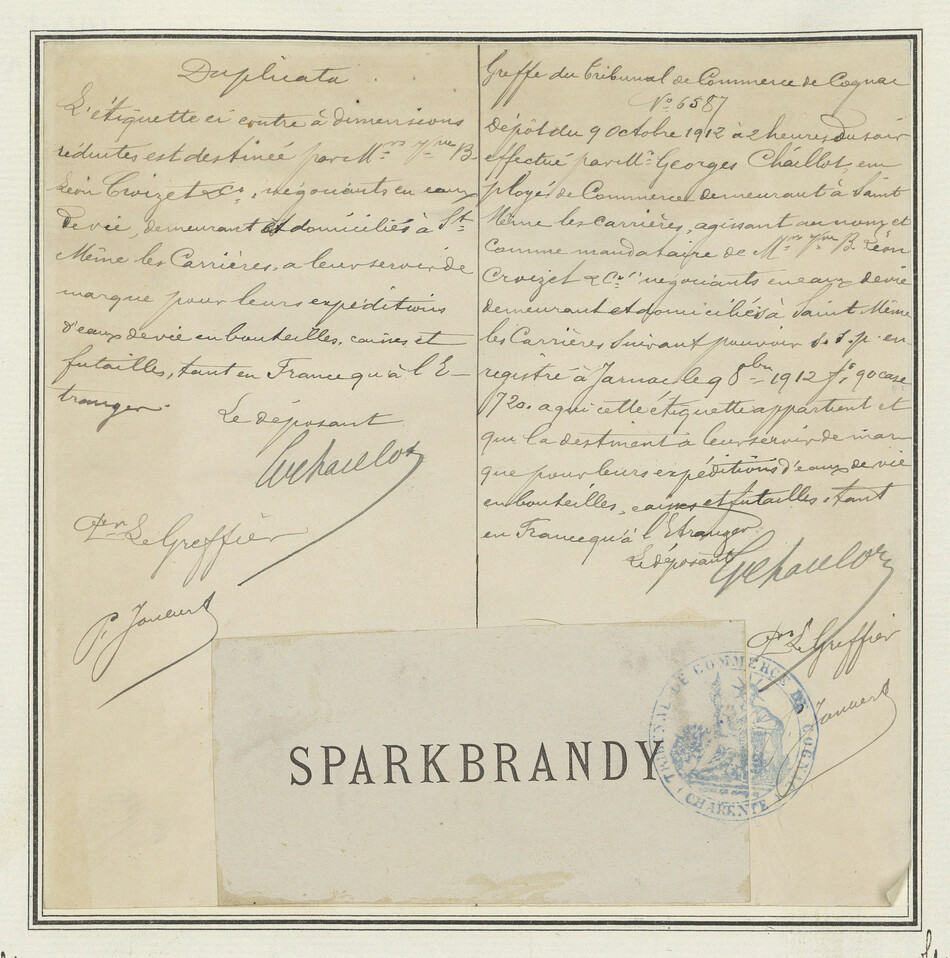 Duplicata
L'étiquette ci contre à dimensions
réduites est destinée par Mrs Yve B
Léon Croizet & Co., négociants en eaux
de vie, demeurant et domiciliés à St
Même les Carrières, a leur servir de
marque pour leurs expéditions
d'eaux de vie en bouteilles, caisses et
futailles, tant en France qu'à l'E-
tranger.
Le déposant
Per Le Greffier
Greffe du Tribunal de Commerce de Cognac
No 6587
Dépôt du 9 Octobre 1912 à 2 heures du soir
effectué par Mr Georges Chaillot, em
ployé de Commerce demeurant à Saint
Même les carrières, agissant au nom et
comme mandataire de Mrs Yve B. Léon
Croizet & Co négociants en eaux de vie
demeurant et domiciliés à Saint Même
les Carrières suivant pouvoir s. s. p. en-
registré à Jarnac le 9 8bre 1912 fo 90 case
720. a qui cette étiquette appartient et
qui la destinent à leur servir de mar
que pour leurs expéditions d'eaux de vie
en bouteilles, caisses et futailles, tant
en France qu'à l'Etranger.
Le déposant
Per Le Greffier
SPARKBRANDY
TRIBUNAL DE COMMERCE DE COGNAC
(CHARENTE)